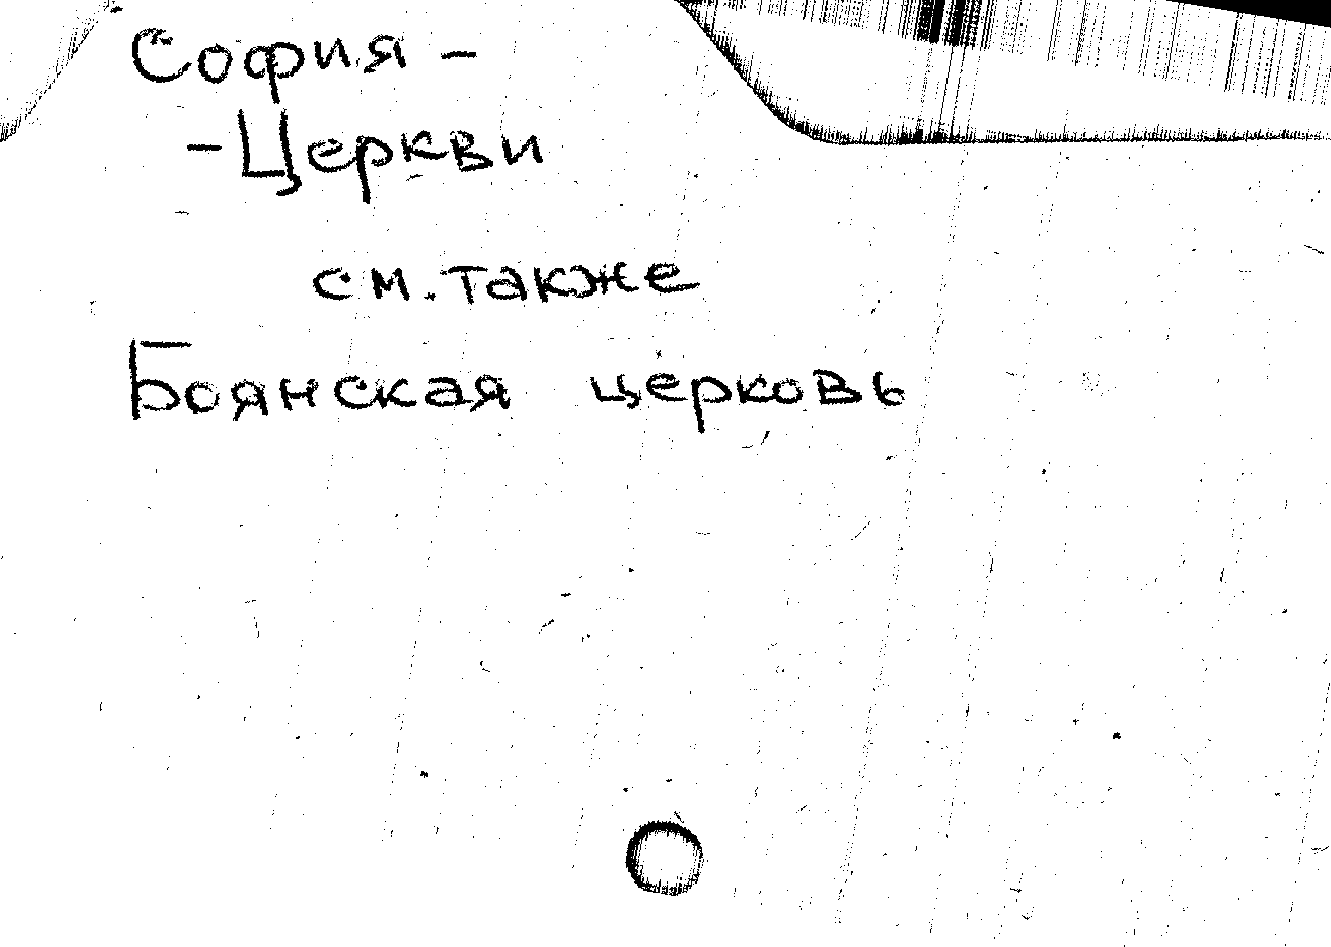 София -
- Церкви
см. также
Боянская церковь